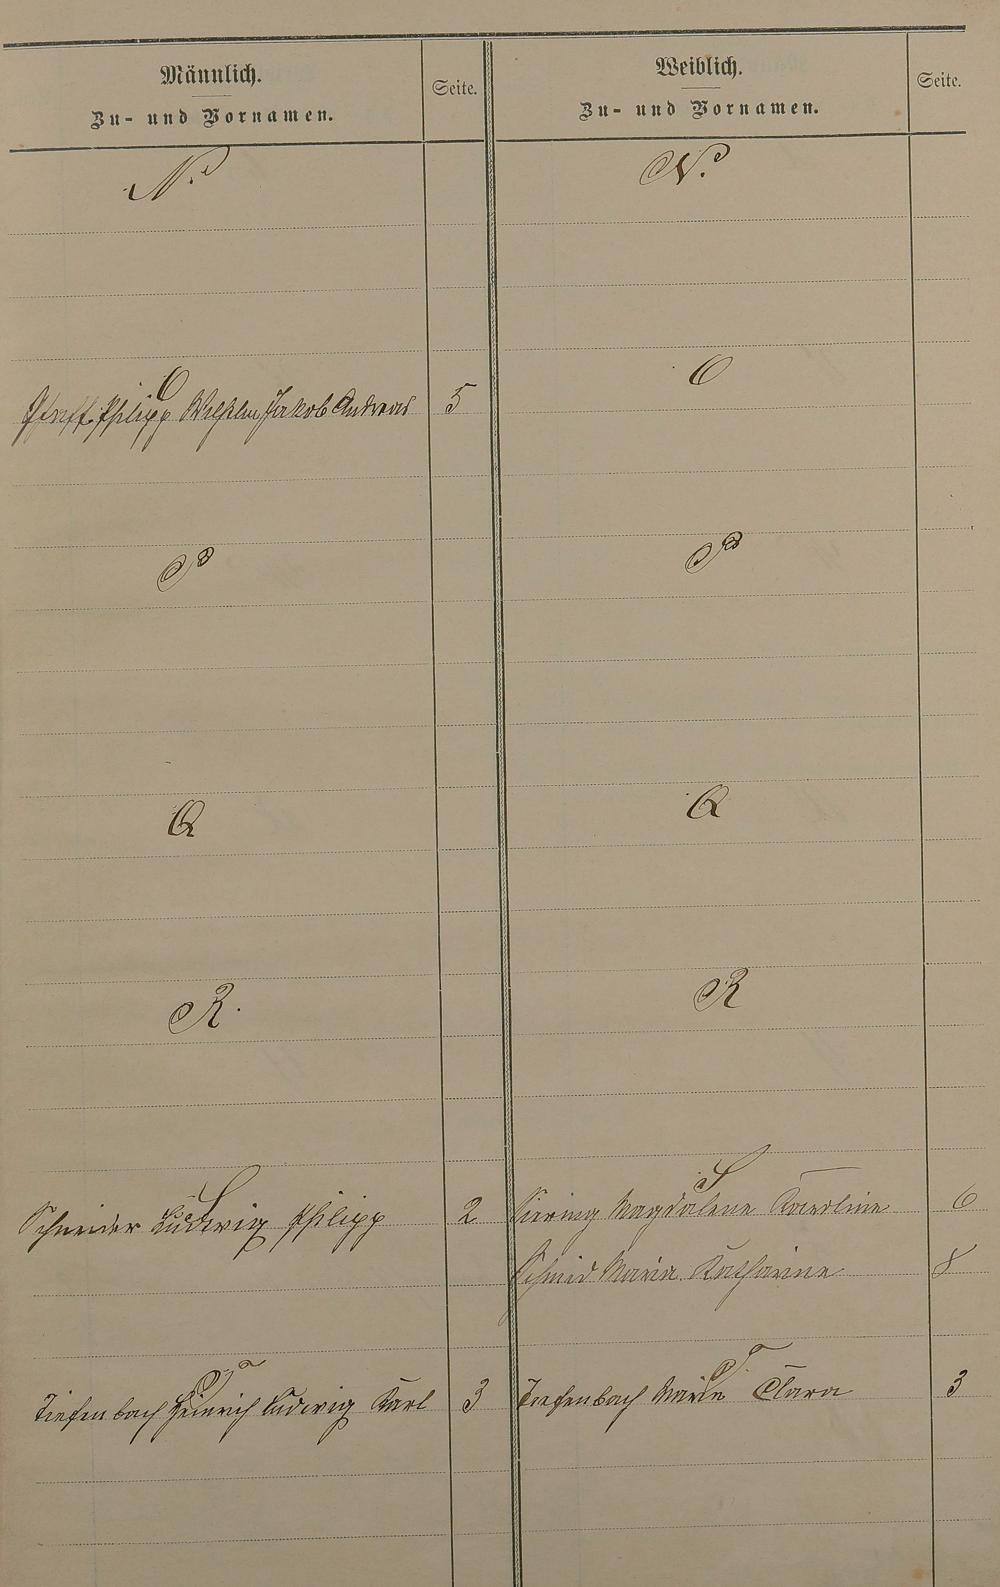 Männlich.
Zu- und Vornamen.
Seite.
Weiblich.
Zu- und Vornamen.
Seite.
N.
N.
O
O
Pfaff Philipp Wilhelm Jakob Andreas 5
P
P
Q
Q
R.
R
S
S
Schneider Ludwig Philipp 2
Siering Magdalene Karoline 6
Schmid Maria Katharine 8
T
T.
Tiefenbach Heinrich Ludwig Karl 3
Tiefenbach Marie Clara 3